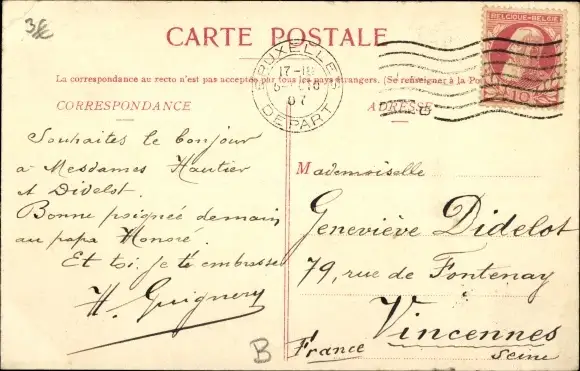 3€
CARTE POSTALE
La correspondance au recto n'est pas acceptée par tous les pays étrangers. (Se renseigner à la Po
BELGIQUE·BELGIË
10
BRUXELLES
17-18
07
DEPART
CORRESPONDANCE
ADRESSE
Souhaites le bonjour
à Mesdames Hautier
et Didelot.
Bonne poignée de main
au papa Honoré.
Et toi je te embrasse
H. Guignery
Mademoiselle
Geneviève Didelot
79, rue de Fontenay
Vincennes
Seine
France
B